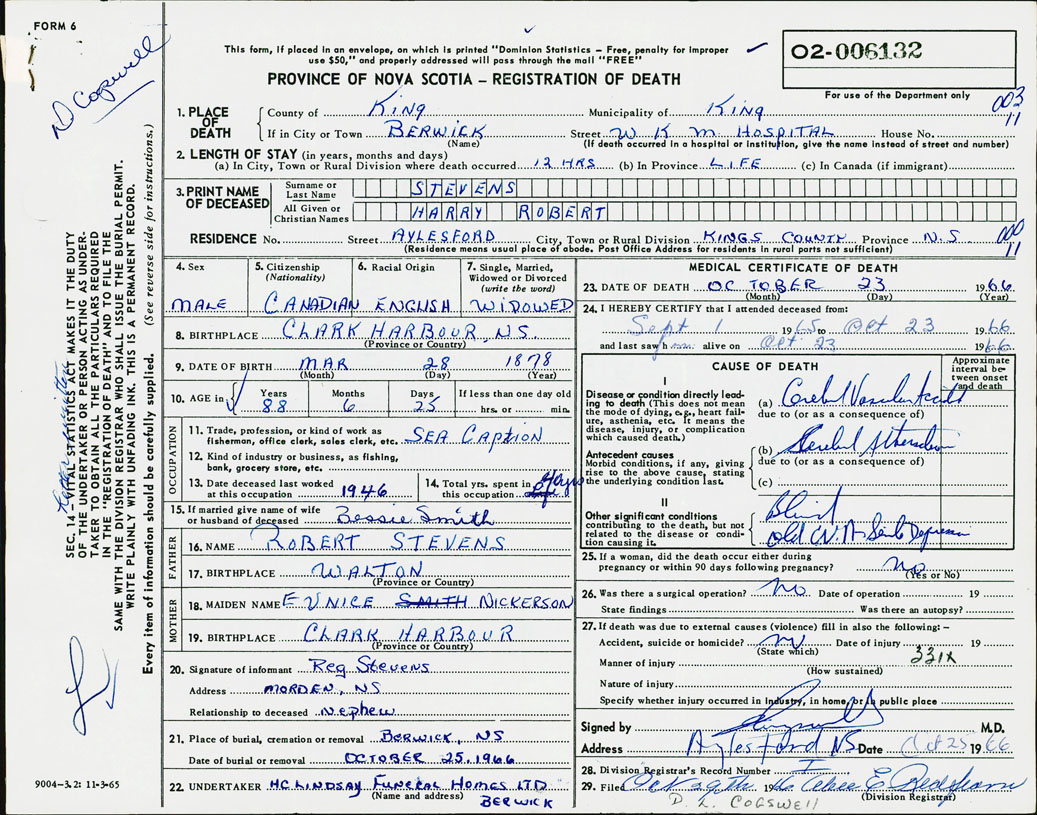 FORM 6
N D Cogswell
This form, if placed in an envelope, on which is printed "Dominion Statistics – Free, penalty for improper
use $50," and properly addressed will pass through the mail "FREE"
02-006132
PROVINCE OF NOVA SCOTIA – REGISTRATION OF DEATH
For use of the Department only
003
11
1. PLACE OF DEATH
County of King Municipality of King
If in City or Town BERWICK Street W K M HOSPITAL House No.
(Name) (If death occurred in a hospital or institution, give the name instead of street and number)
2. LENGTH OF STAY (in years, months and days)
(a) In City, Town or Rural Division where death occurred 12 HRS (b) In Province LIFE (c) In Canada (if immigrant)
3. PRINT NAME OF DECEASED
Surname or Last Name STEVENS
All Given or Christian Names HARRY ROBERT
RESIDENCE No. Street AYLESFORD City, Town or Rural Division KINGS COUNTY Province N.S
(Residence means usual place of abode. Post Office Address for residents in rural parts not sufficient)
000
11
4. Sex MALE
5. Citizenship (Nationality) CANADIAN
6. Racial Origin ENGLISH
7. Single, Married, Widowed or Divorced (write the word) WIDOWED
8. BIRTHPLACE CLARK HARBOUR, NS.
(Province or Country)
9. DATE OF BIRTH MAR 28 1878
(Month) (Day) (Year)
10. AGE in Years Months Days If less than one day old
88 6 25 hrs. or min.
OCCUPATION
11. Trade, profession, or kind of work as
fisherman, office clerk, sales clerk, etc. SEA CAPTION
12. Kind of industry or business, as fishing,
bank, grocery store, etc.
13. Date deceased last worked
at this occupation 1946
14. Total yrs. spent in
this occupation
15. If married give name of wife
or husband of deceased Bessie Smith
FATHER
16. NAME ROBERT STEVENS
17. BIRTHPLACE WALTON
(Province or Country)
MOTHER
18. MAIDEN NAME EUNICE SMITH NICKERSON
19. BIRTHPLACE CLARK HARBOUR
(Province or Country)
20. Signature of informant Reg Stevens
Address MORDEN, NS
Relationship to deceased Nephew
21. Place of burial, cremation or removal BERWICK, NS
Date of burial or removal OCTOBER 25, 1966
22. UNDERTAKER HC LINDSAY FUNERAL HOMES LTD
(Name and address) BERWICK
MEDICAL CERTIFICATE OF DEATH
23. DATE OF DEATH OCTOBER 23 1966
(Month) (Day) (Year)
24. I HEREBY CERTIFY that I attended deceased from:
Sept 1 1965 to Oct 23 1966
and last saw h alive on Oct 23 1966
CAUSE OF DEATH
Approximate interval between onset and death
I
Disease or condition directly leading
to death (This does not mean
the mode of dying, e.g., heart failure,
asthenia, etc. It means the
disease, injury, or complication
which caused death.)
(a) Cerebral Vascular Accident
due to (or as a consequence)
Antecedent causes
Morbid conditions, if any, giving
rise to the above cause, stating
the underlying condition last.
(b) Cerebral
due to (or as a consequence)
(c)
II
Other significant conditions
contributing to the death, but not
related to the disease or condition
causing it.
Blind
old C.V.A Senile Depression
25. If a woman, did the death occur either during
pregnancy or within 90 days following pregnancy? no
(Yes or No)
26. Was there a surgical operation? no Date of operation 19
State findings Was there an autopsy?
27. If death was due to external causes (violence) fill in also the following:–
Accident, suicide or homicide? Date of injury 19
(State which)
331X
Manner of injury
(How sustained)
Nature of injury
Specify whether injury occurred in Industry, in home, or in public place
Signed by M.D.
Address Aylesford NS Date Oct 25 1966
28. Division Registrar's Record Number
29. Filed Oct 29th 19
(Division Registrar)
D. L. COGSWELL
SEC. 14 – VITAL STATISTICS ACT MAKES IT THE DUTY
OF THE UNDERTAKER OR PERSON ACTING AS UNDERTAKER
TO OBTAIN ALL THE PARTICULARS REQUIRED
IN THE "REGISTRATION OF DEATH" AND TO FILE THE
SAME WITH THE DIVISION REGISTRAR WHO SHALL ISSUE THE BURIAL PERMIT.
WRITE PLAINLY WITH UNFADING INK. THIS IS A PERMANENT RECORD.
Every item of information should be carefully supplied. (See reverse side for instructions.)
9004-3.2: 11-3-65